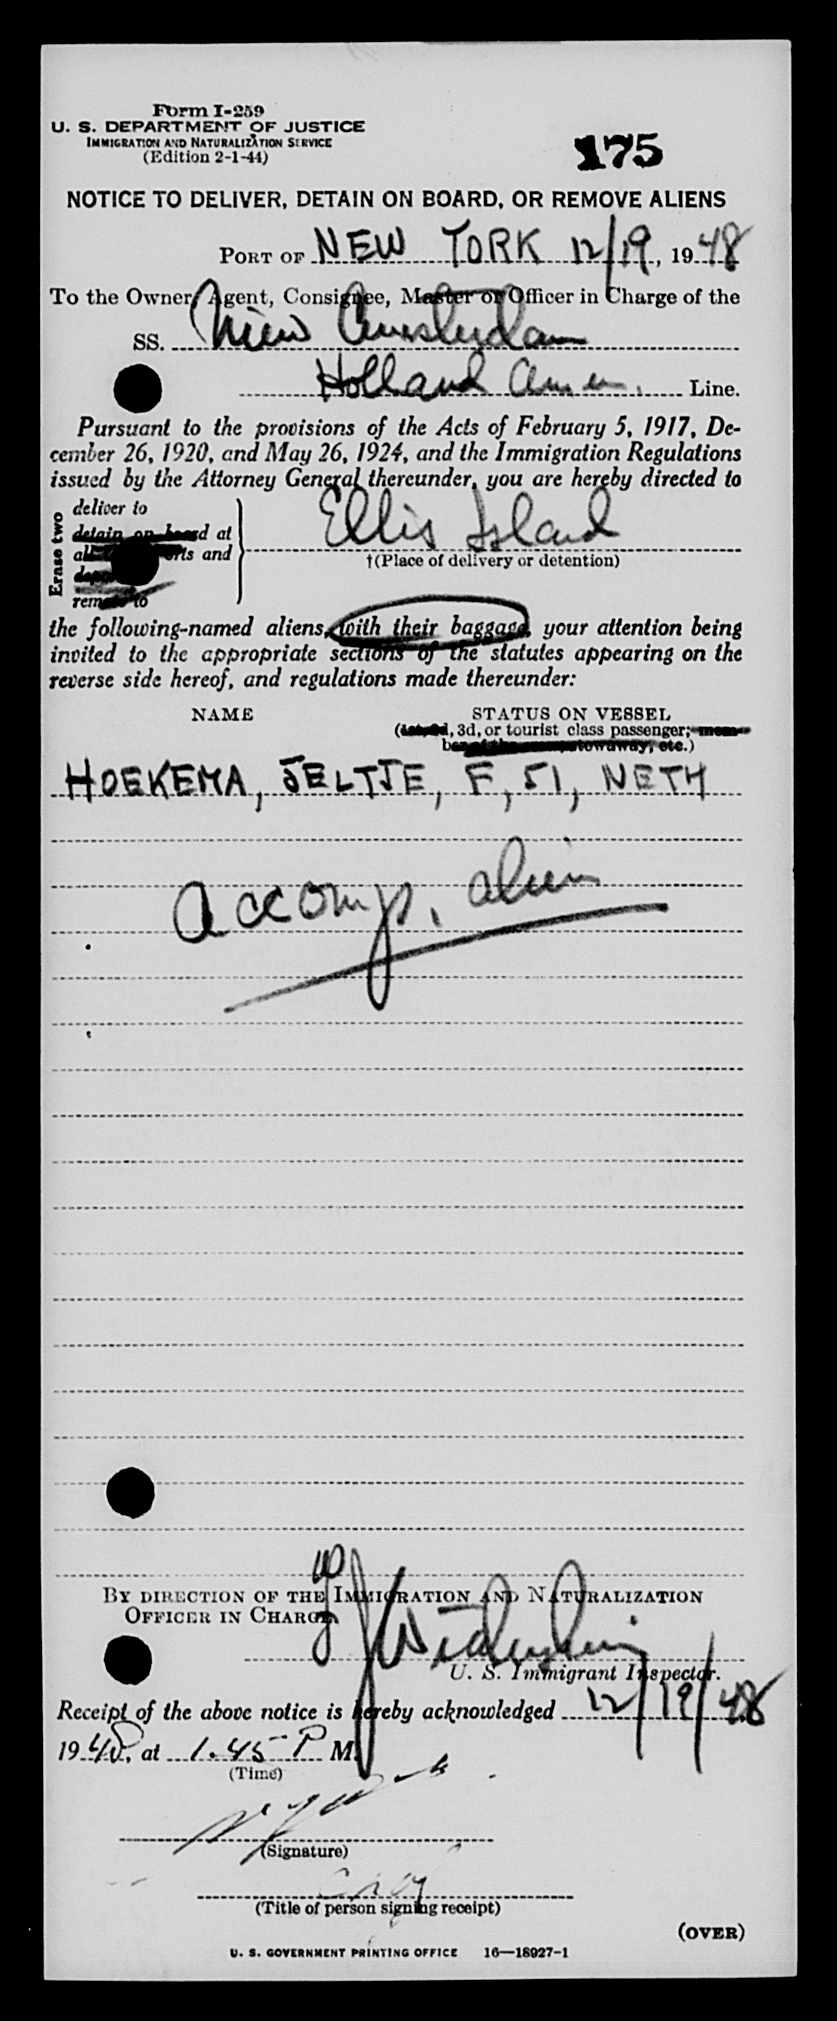 Form I-259
U. S. DEPARTMENT OF JUSTICE
IMMIGRATION AND NATURALIZATION SERVICE
(Edition 2-1-44)
175
NOTICE TO DELIVER, DETAIN ON BOARD, OR REMOVE ALIENS
PORT OF NEW YORK 12/19, 1948
To the Owner, Agent, Consignee, Master or Officer in Charge of the
SS. Nieu Amsterdam
Holland Amer. Line.
Pursuant to the provisions of the Acts of February 5, 1917, De-
cember 26, 1920, and May 26, 1924, and the Immigration Regulations
issued by the Attorney General thereunder, you are hereby directed to
Erase two
deliver to
detain on board at
all ports and
remove to
Ellis Island
†(Place of delivery or detention)
the following-named aliens, with their baggage, your attention being
invited to the appropriate sections of the statutes appearing on the
reverse side hereof, and regulations made thereunder:
NAME
STATUS ON VESSEL
(1st, 2d, 3d, or tourist class passenger; mem-
ber of the stowaway, etc.)
HOEKEMA, JELTJE, F, 51, NETH
accomp. alien
BY DIRECTION OF THE IMMIGRATION AND NATURALIZATION
OFFICER IN CHARGE,
U. S. Immigrant Inspector.
Receipt of the above notice is hereby acknowledged 12/19/48
1948, at 1.45 P M.
(Time)
(Signature)
(Title of person signing receipt)
(OVER)
U. S. GOVERNMENT PRINTING OFFICE 16—18927-1